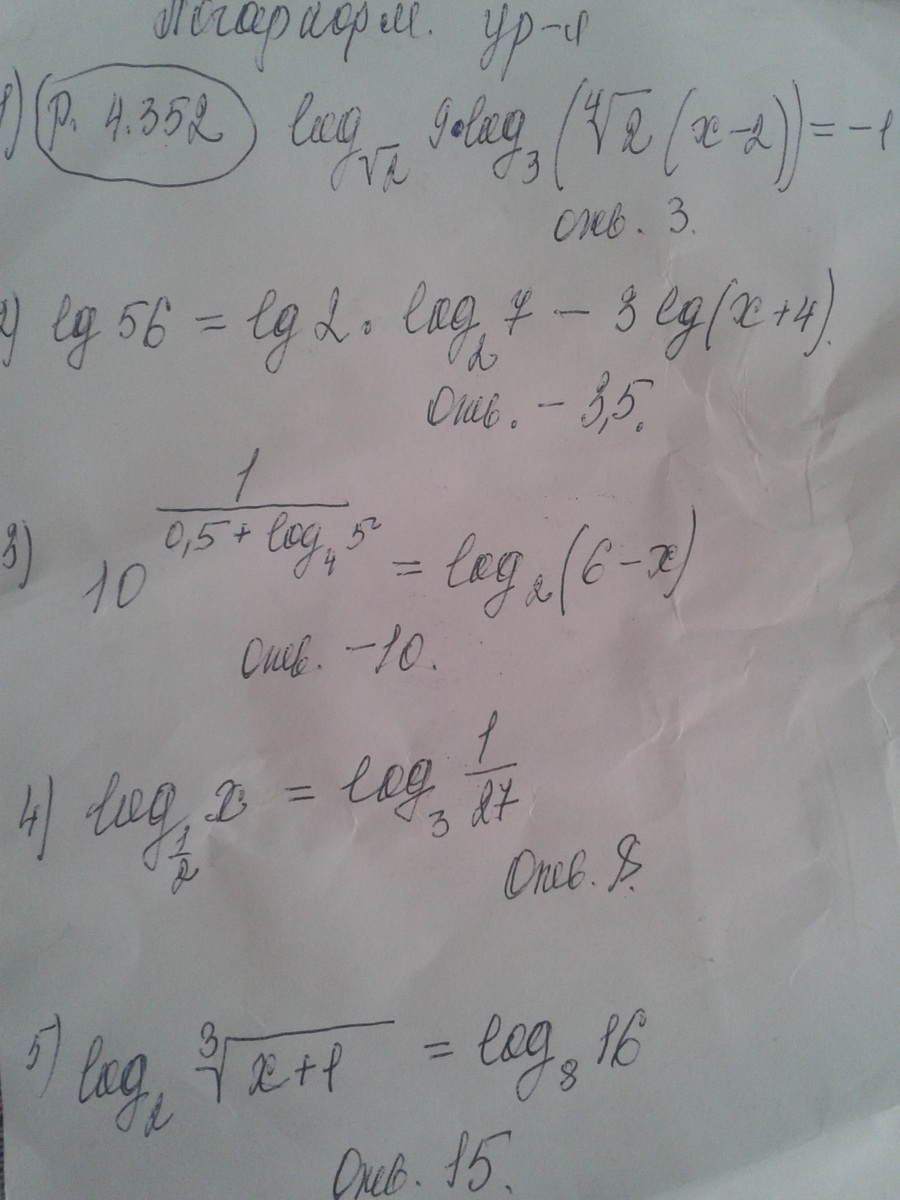 Логарифм. ур-я
1) Р. 4.352 log_√2 9·log_3 (∜2 (x-2)) = -1
отв. 3.
2) lg 56 = lg 2 · log_2 7 - 3 lg(x+4).
Отв. - 3,5.
3) 10^(1/(0,5 + log_4 5)) = log_2 (6-x)
Отв. -10.
4) log_(1/2) x = log_3 1/27
Отв. 8.
5) log_2 ∛(x+1) = log_8 16
Отв. 15.